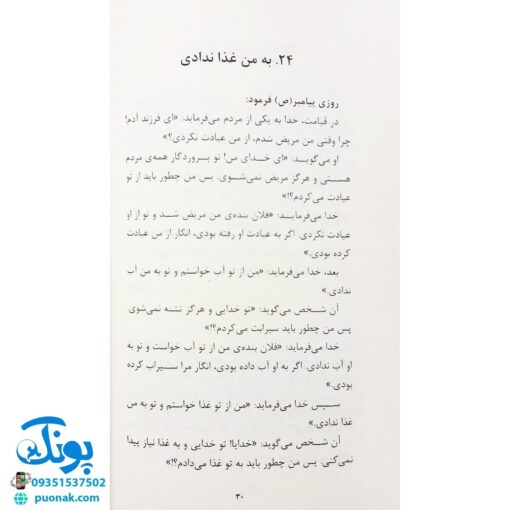 ۲۴. به من غذا ندادی
روزی پیامبر(ص) فرمود:
در قیامت، خدا به یکی از مردم می‌فرماید: «ای فرزند آدم!
چرا وقتی من مریض شدم، از من عیادت نکردی؟»
او می‌گوید: «ای خدای من! تو پروردگار همه‌ی مردم
هستی و هرگز مریض نمی‌شوی. پس من چطور باید از تو
عیادت می‌کردم؟!»
خدا می‌فرماید: «فلان بنده‌ی من مریض شد و تو از او
عیادت نکردی. اگر به عیادت او رفته بودی، انگار از من عیادت
کرده بودی.»
بعد، خدا می‌فرماید: «من از تو آب خواستم و تو به من آب
ندادی.»
آن شخص می‌گوید: «تو خدایی و هرگز تشنه نمی‌شوی.
پس من چطور باید سیرابت می‌کردم؟!»
خدا می‌فرماید: «فلان بنده‌ی من از تو آب خواست و تو به
او آب ندادی. اگر به او آب داده بودی، انگار مرا سیراب کرده
بودی.»
سپس خدا می‌فرماید: «من از تو غذا خواستم و تو به من
غذا ندادی.»
آن شخص می‌گوید: «خدایا! تو خدایی و به غذا نیاز پیدا
نمی‌کنی. پس من چطور باید به تو غذا می‌دادم؟!»
۳۰
پونک
09351537502
puonak.com